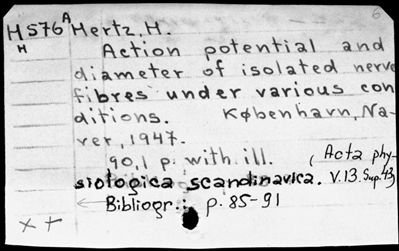 6
HS76A Hertz, H.
H
Action potential and
diameter of isolated nerve
fibres under various con
ditions. København, Na-
ver, 1947.
90,1 p. with ill. (Acta phy-
siologica scandinavica. V.13. Sup.43)
Bibliogr.: p. 85-91